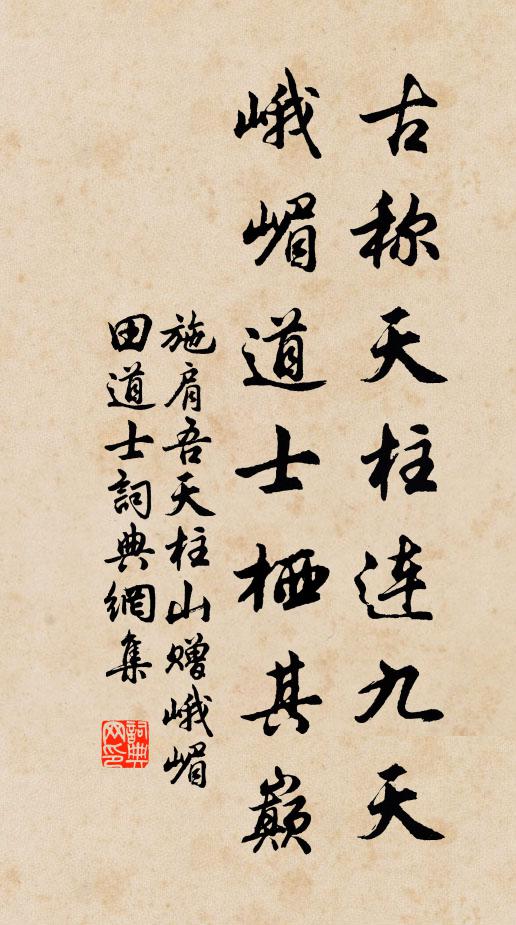 古称天柱连九天
峨嵋道士栖其巅
施肩吾天柱山赠峨嵋
田道士詞典網集
詞典
网印